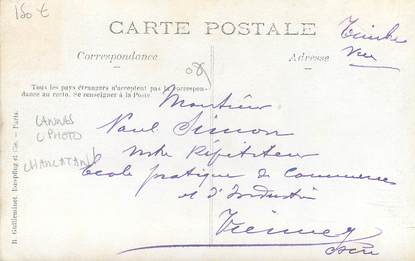 150 €
CARTE POSTALE
Timbre
Vue
Correspondance
Adresse
08
Tous les pays étrangers n'acceptent pas la correspon-
dance au recto. Se renseigner à la Poste.
Monsieur
Paul Simon
Répétiteur
Ecole pratique de Commerce
et d'Industrie
Vienne
Isère
CANNES
C PHOTO
CHARLATAN
B. Guilleminot, Boespflug et Cie. - Paris.